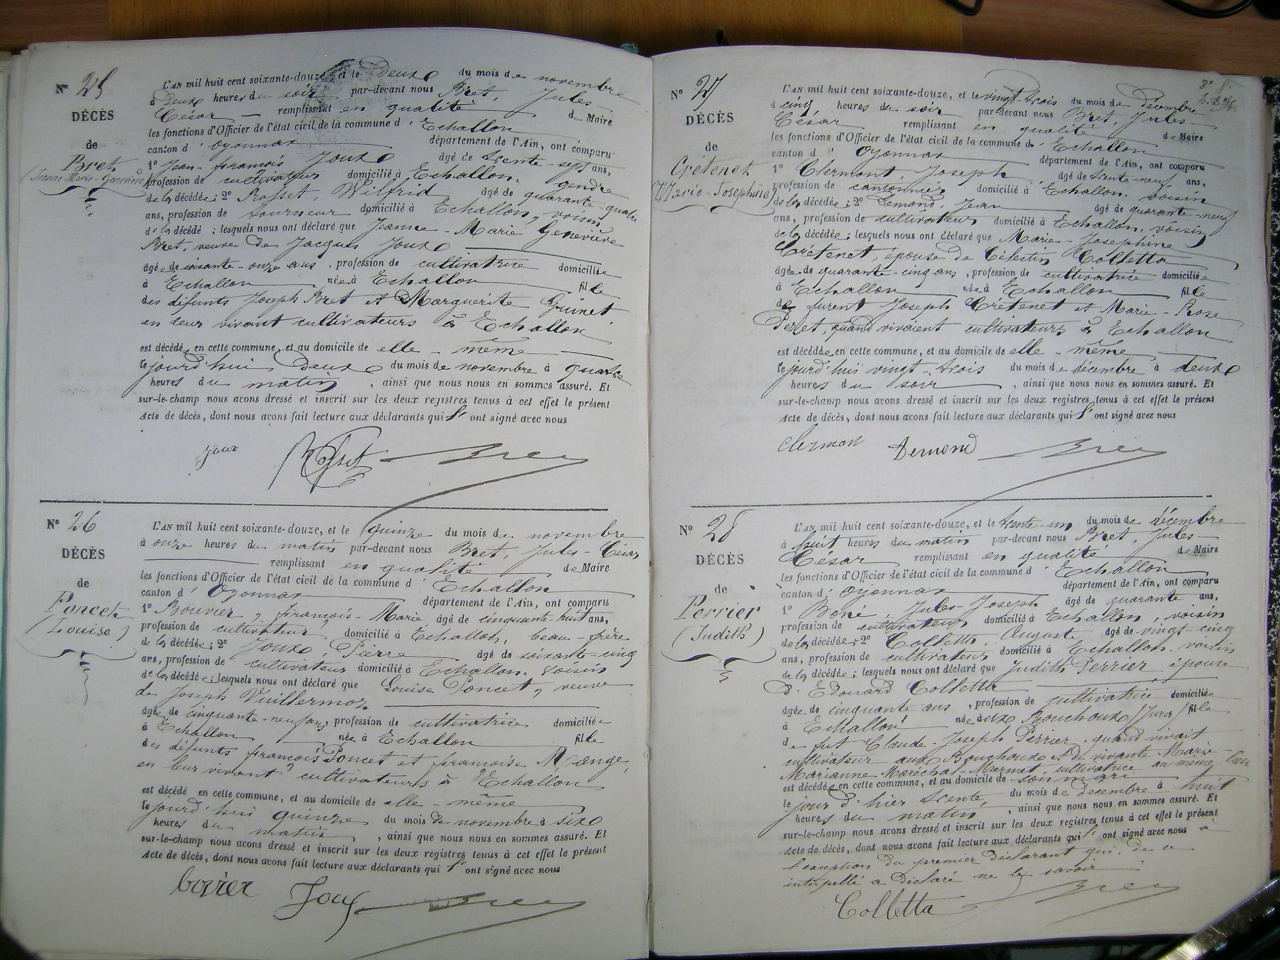 N° 25
DÉCÈS
de
Bret
(Jeanne Marie-Geneviève)
L'AN mil huit cent soixante-douze, et le deux du mois de novembre
à deux heures du soir par-devant nous Bret, Jules-
César remplissant en qualité de Maire
les fonctions d'Officier de l'état civil de la commune d'Echallon
canton d'Oyonnax département de l'Ain, ont comparu
1° Jean-françois Joux âgé de trente-sept ans,
profession de cultivateur domicilié à Echallon, gendre
de la décédée; 2° Rosset, Wilfrid âgé de quarante quatre
ans, profession de tourneur domicilié à Echallon, voisin
de la décédée; lesquels nous ont déclaré que Jeanne-Marie Geneviève
Bret, veuve de Jacques Joux
âgée de soixante-onze ans, profession de cultivatrice domiciliée
à Echallon née à Echallon fille
des défunts Joseph Bret et Marguerite Guinet
en leur vivant cultivateurs à Echallon
est décédée en cette commune, et au domicile de elle-même
le jourd'hui deux du mois de novembre à quatre
heures du matin, ainsi que nous nous en sommes assuré. Et
sur-le-champ nous avons dressé et inscrit sur les deux registres tenus à cet effet le présent
acte de décès, dont nous avons fait lecture aux déclarants qui l' ont signé avec nous
joux Rosset Bret
N° 26
DÉCÈS
de
Poncet
(Louise)
L'AN mil huit cent soixante-douze, et le quinze du mois de novembre
à onze heures du matin par-devant nous Bret, Jules-César
remplissant en qualité de Maire
les fonctions d'Officier de l'état civil de la commune d'Echallon
canton d'Oyonnax département de l'Ain, ont comparu
1° Bouvier, françois-Marie âgé de cinquante huit ans,
profession de cultivateur domicilié à Echallon, beau-frère
de la décédée; 2° Joux Pierre âgé de soixante-cinq
ans, profession de cultivateur domicilié à Echallon, voisin
de la décédée; lesquels nous ont déclaré que Louise Poncet, veuve
de Joseph Vuillermoz
âgée de cinquante-neuf ans, profession de cultivatrice domiciliée
à Echallon née à Echallon fille
des défunts françois Poncet et françoise
en leur vivant cultivateurs à Echallon
est décédé en cette commune, et au domicile de elle-même
le jourd'hui quinze du mois de novembre à six
heures du matin, ainsi que nous nous en sommes assuré. Et
sur-le-champ nous avons dressé et inscrit sur les deux registres tenus à cet effet le présent
acte de décès, dont nous avons fait lecture aux déclarants qui l' ont signé avec nous
Joux Bret
N° 27
DÉCÈS
de
Crétenet
(Marie-Josephine)
L'AN mil huit cent soixante-douze, et le vingt-trois du mois de Décembre
à cinq heures du soir par-devant nous Bret, Jules
César remplissant en qualité de Maire
les fonctions d'Officier de l'état civil de la commune d'Echallon
canton d'Oyonnax département de l'Ain, ont comparu
1° Clermont, Joseph âgé de trente neuf ans,
profession de cantonnier domicilié à Echallon, voisin
de la décédée; 2° Demond Jean âgé de quarante-neuf
ans, profession de cultivateur domicilié à Echallon, voisin
de la décédée; lesquels nous ont déclaré que Marie-Josephine
Crétenet, épouse de Célestin Colletta
âgée de quarante-cinq ans, profession de cultivatrice domiciliée
à Echallon née à Echallon fille
de furent Joseph Crétenet et Marie-Rose
Peret, quand vivaient cultivateurs à Echallon
est décédée en cette commune, et au domicile de elle-même
le jourd'hui vingt-trois du mois de décembre à deux
heures du soir, ainsi que nous nous en sommes assuré. Et
sur-le-champ nous avons dressé et inscrit sur les deux registres tenus à cet effet le présent
acte de décès, dont nous avons fait lecture aux déclarants qui l' ont signé avec nous
Clermon Demond Bret
N° 28
DÉCÈS
de
Perrier
(Judith)
L'AN mil huit cent soixante-douze, et le trente-un du mois de décembre
à huit heures du matin par-devant nous Bret, Jules
César remplissant en qualité de Maire
les fonctions d'Officier de l'état civil de la commune d'Echallon
canton d'Oyonnax département de l'Ain, ont comparu
1° Béné, Jules-Joseph âgé de quarante ans,
profession de cultivateur domicilié à Echallon, voisin
de la décédée; 2° Colletta, August âgé de vingt-cinq
ans, profession de cultivateur domicilié à Echallon, voisin
de la décédée; lesquels nous ont déclaré que Judith Perrier épouse
d'Edouard Colletta
âgée de cinquante ans, profession de cultivatrice domiciliée
à Echallon née aux Bouchoux (Jura) fille
de fut Claude-Joseph Perrier, quand vivait
cultivateur aux Bouchoux et de vivante Marie-
Marianne Maréchal-Mermet cultivatrice au même lieu
est décédée en cette commune, et au domicile de son mari
le jour d'hier trente, du mois de decembre à huit
heures du matin, ainsi que nous nous en sommes assuré. Et
sur-le-champ nous avons dressé et inscrit sur les deux registres tenus à cet effet le présent
acte de décès, dont nous avons fait lecture aux déclarants qui l' ont signé avec nous à
l'exception du premier déclarant qui de ce
interpellé a déclaré ne le savoir
Colletta Bret